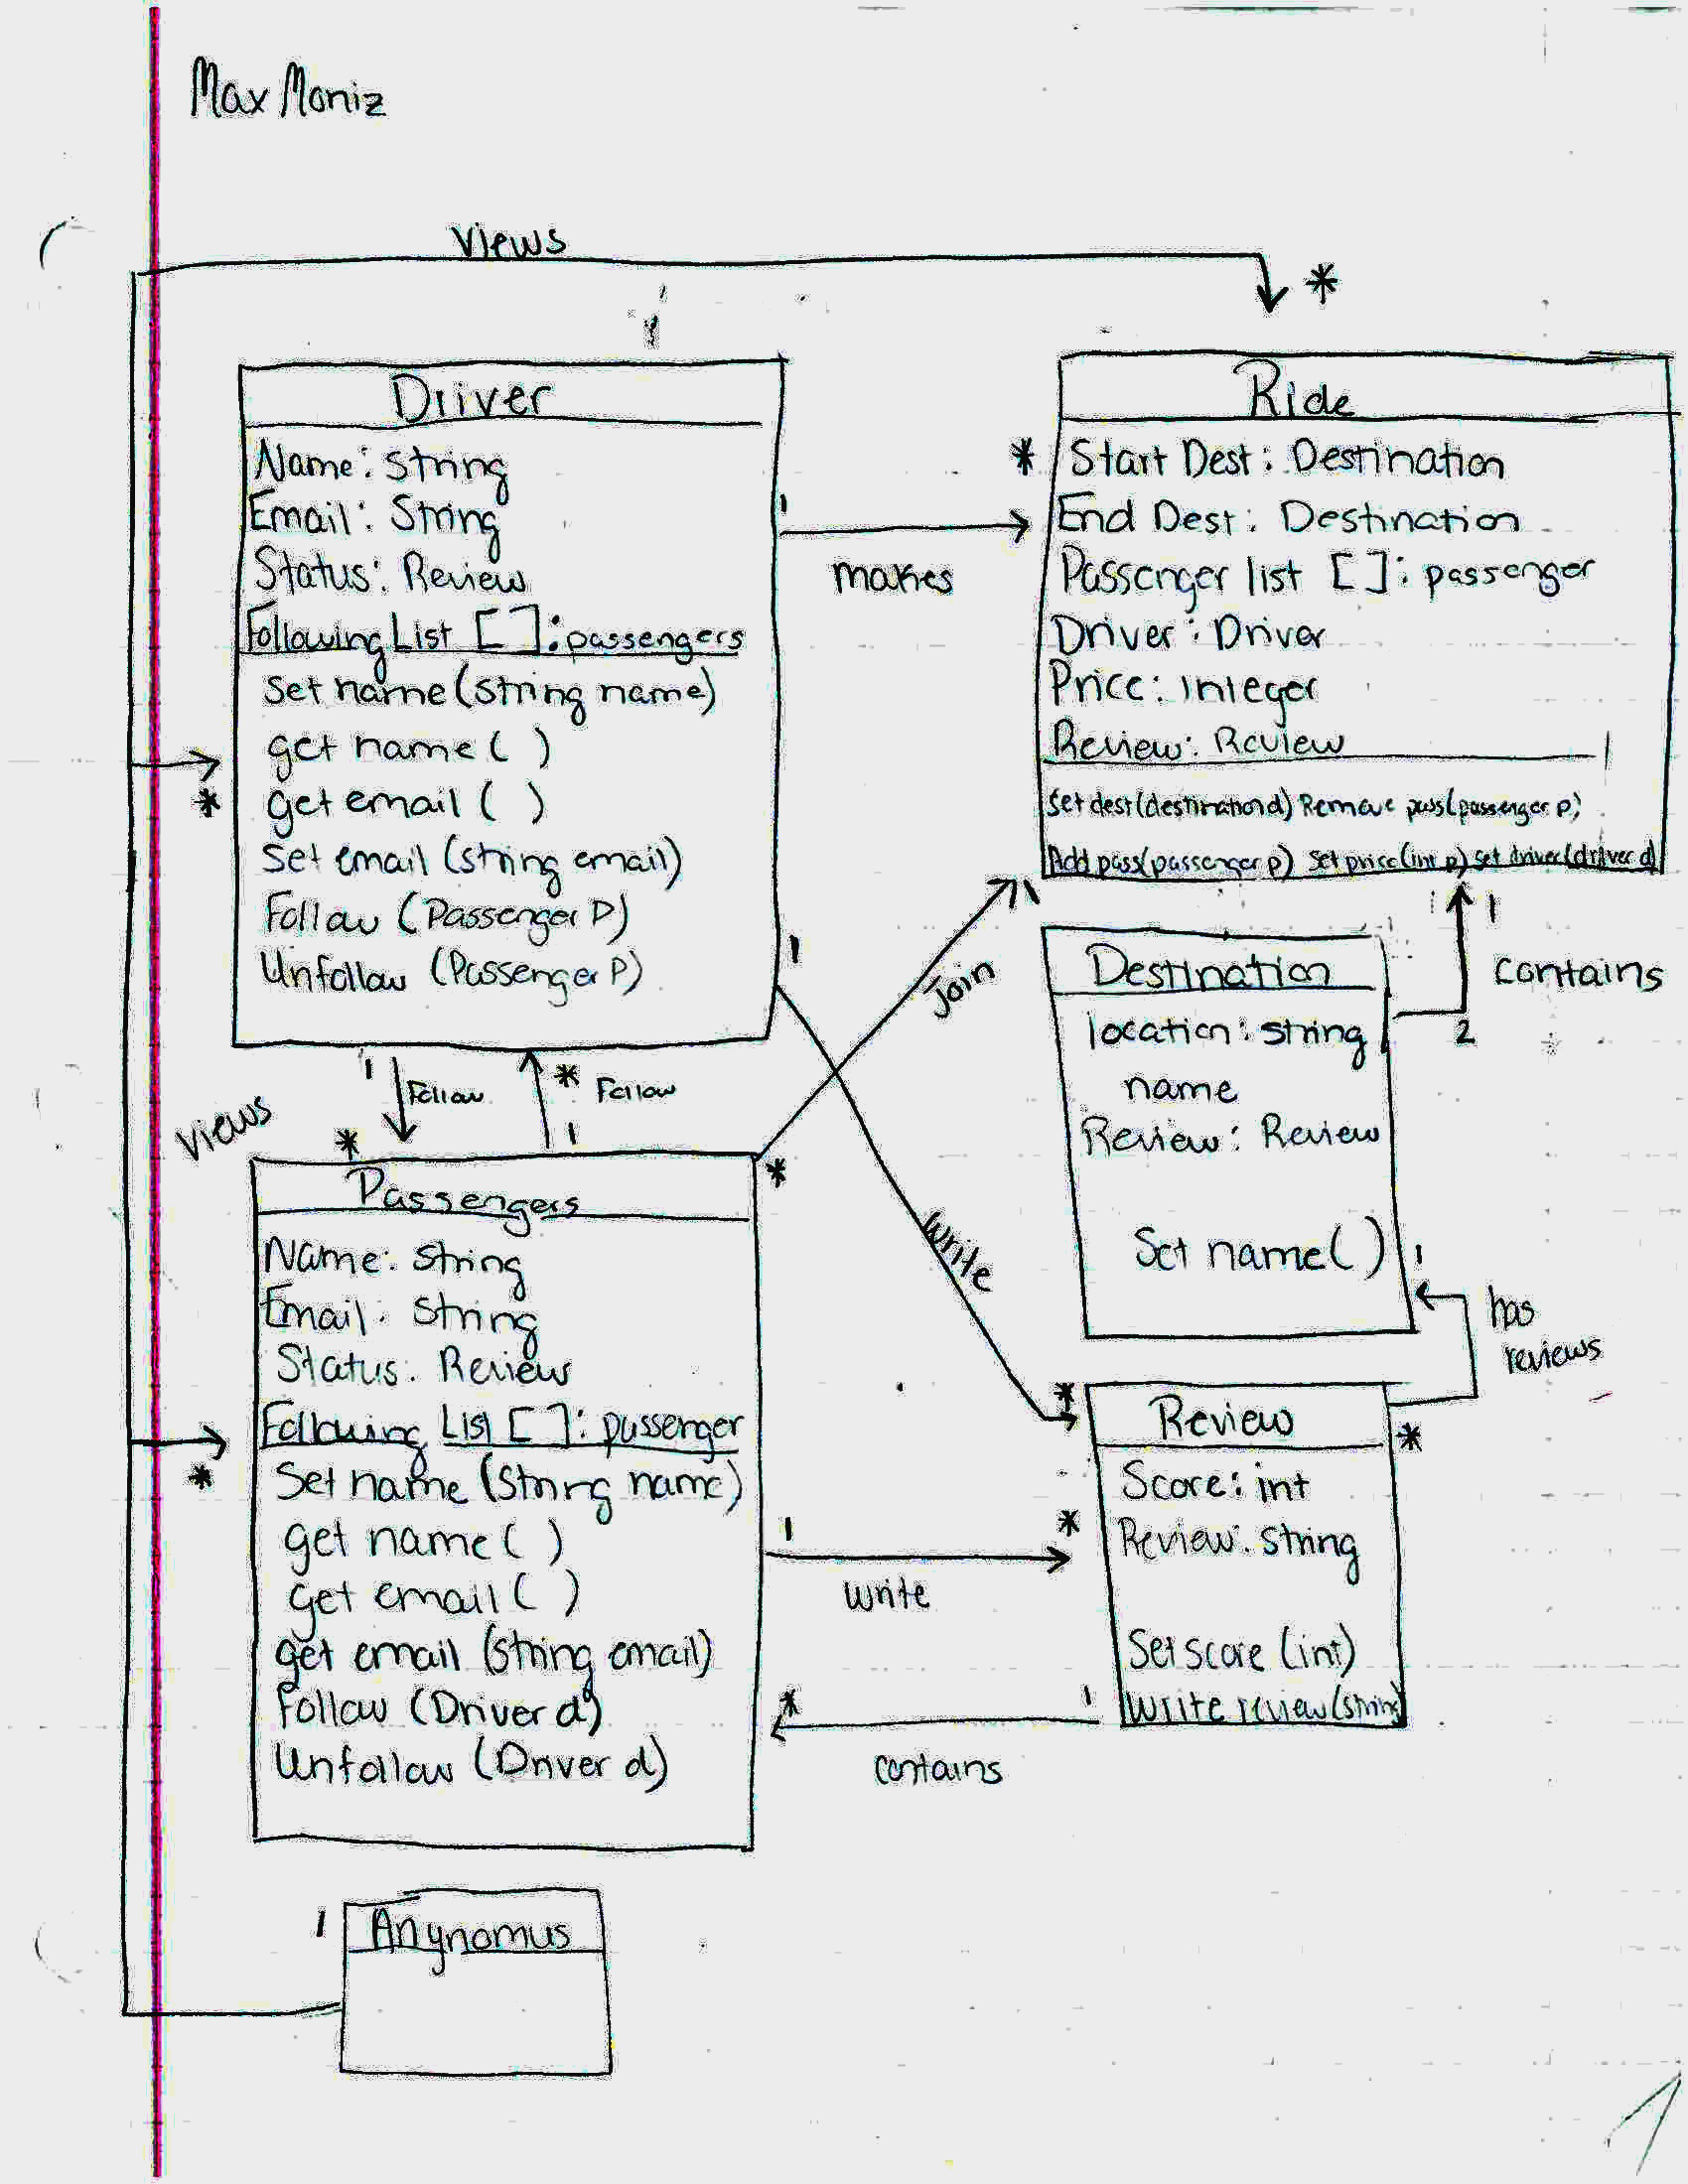 Max Moniz
Views
*
Driver
Name: String
Email: String
Status: Review
Following List [ ]: passengers
Set name (string name)
get name ( )
get email ( )
Set email (string email)
Follow (Passenger P)
Unfollow (Passenger P)
*
1
makes
*
Ride
Start Dest: Destination
End Dest: Destination
Passenger list [ ]: passenger
Driver: Driver
Price: Integer
Review: Review
Set dest(destination d) Remove pass(passenger p)
Add pass(passenger p) Set price(int p) set driver(driver d)
1
Join
*
1
contains
2
Destination
location: string
name
Review: Review
Set name( )
1
has
reviews
*
1
Write
*
1
Follow
*
*
Follow
1
Views
Passengers
Name: String
Email: String
Status: Review
Following List [ ]: passenger
Set name (String name)
get name ( )
get email ( )
get email (string email)
Follow (Driver d)
Unfollow (Driver d)
*
1
write
*
Review
Score: int
Review: string
Set score (int)
Write review (string)
1
contains
*
1
Anynomus